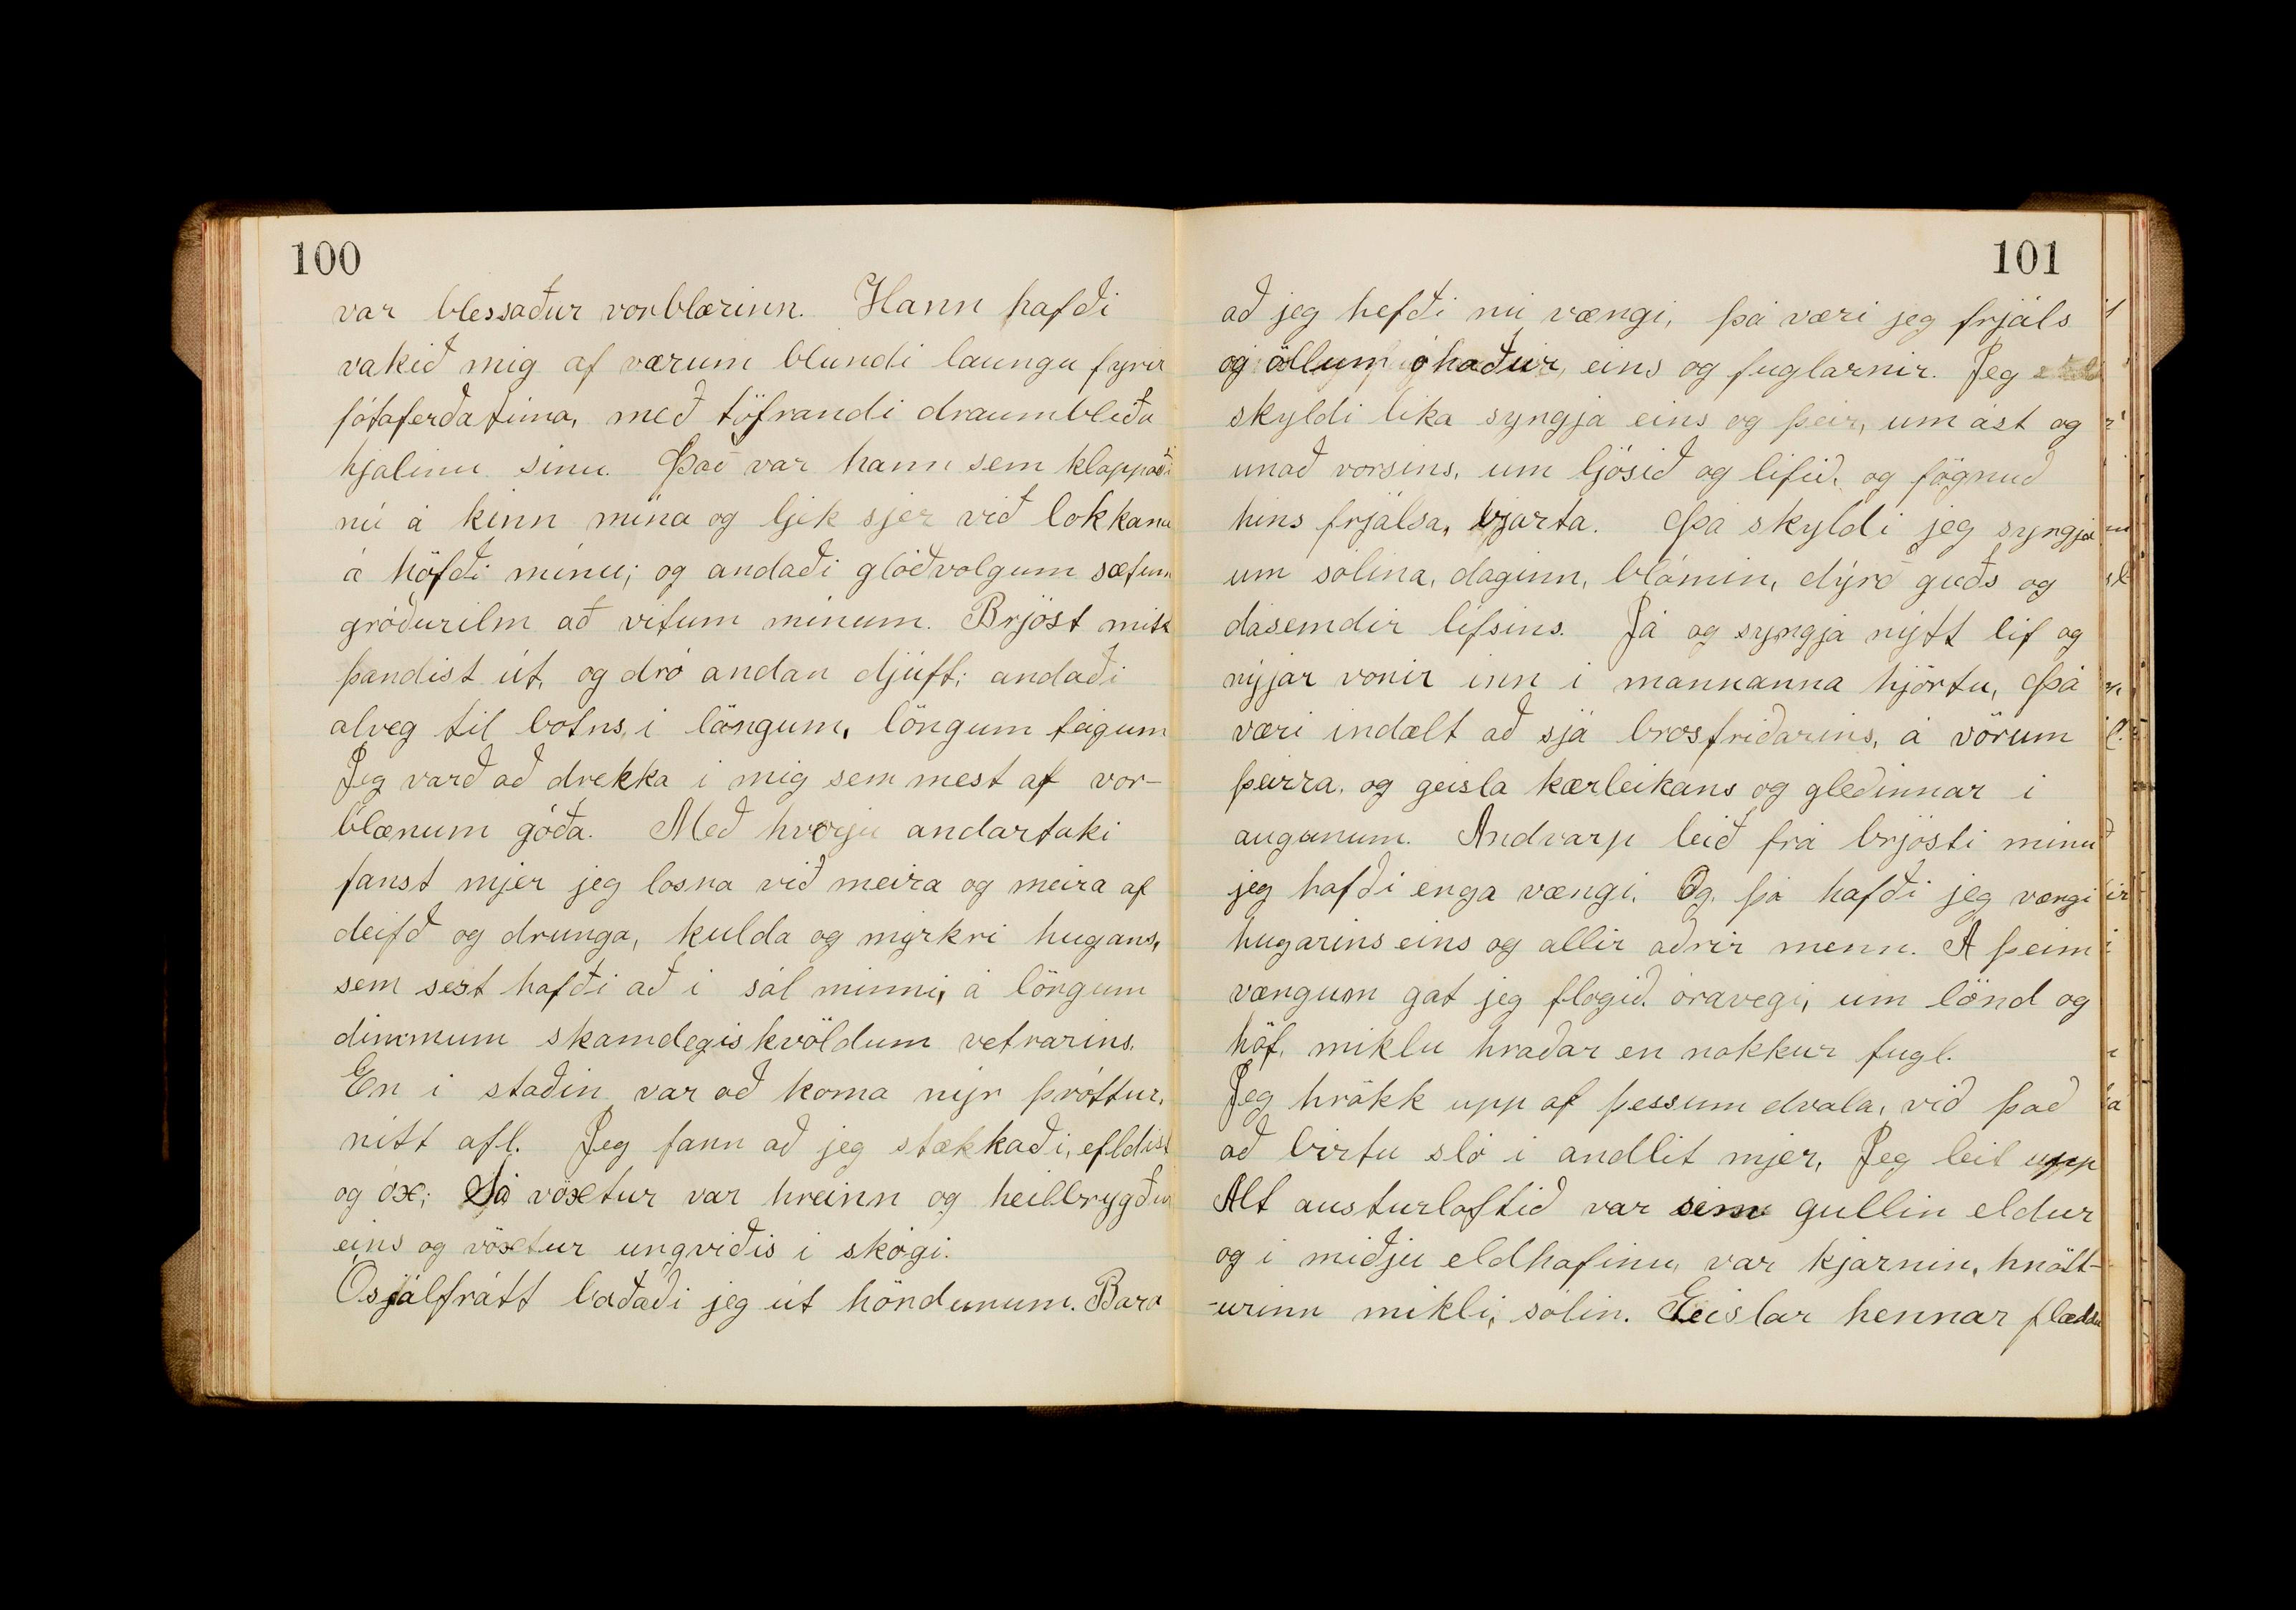 100
var blessaður vorblærinn. Hann hafði
vakið mig af værum blundi laungu fyrir
fótaferðatíma, með töfrandi draumblíðu
hjalinu sínu. Það var hann sem klappaði
nú á kinn mína og ljek sjer við lokkana
á höfði mínu; og andaði glóðvolgum sætum
gróðurilm að vitum mínum. Brjóst mitt
þandist út, og dró andan djúft; andaði
alveg til botns, í löngum, löngum teigum
Jeg varð að drekka í mig sem mest af vor-
blænum góða. Með hverju andartaki
fanst mjer jeg losna við meira og meira af
deifð og drunga, kulda og myrkri hugans,
sem sest hafði að í sál minni, á löngum
dimmum skamdegiskvöldum vetrarins.
En í staðin var að koma nýr þróttur,
nítt afl. Jeg fann að jeg stækkaði, efldist
og óx; Sá vöxtur var hreinn og heilbrygður
eins og vöxtur ungviðis í skógi.
Ósjálfrátt baðaði jeg út höndunum. Bara
101
að jeg hefði nú vængi, þá væri jeg frjáls
og öllum óháður, eins og fuglarnir. Jeg
skyldi líka syngja eins og þeir, um ást og
unað vorsins, um ljósið og lífið, og fögnuð
hins frjálsa, hjarta. Þá skyldi jeg syngja
um sólina, daginn, blómin, dýrð guðs og
dásemdir lífsins. Já og syngja nýtt líf og
nýjar vonir inn í mannanna hjörtu, Þá
væri indælt að sjá bros friðarins, á vörum
þeirra, og geisla kærleikans og gleðinnar í
augunum. Andvarp leið frá brjósti mínu
jeg hafði enga vængi. Og þó hafði jeg vængi
hugarins eins og allir aðrir menn. Á þeim
vængum gat jeg flogið, óravegi, um lönd og
höf, miklu hraðar en nokkur fugl.
Jeg hrökk upp af þessum dvala, við það
að birtu sló í andlit mjer, Jeg leit upp
Alt austurloftið var sem gullin eldur
og í miðju eldhafinu, var kjarnin, hnött-
-urinn mikli, sólin. Geislar hennar flæddu